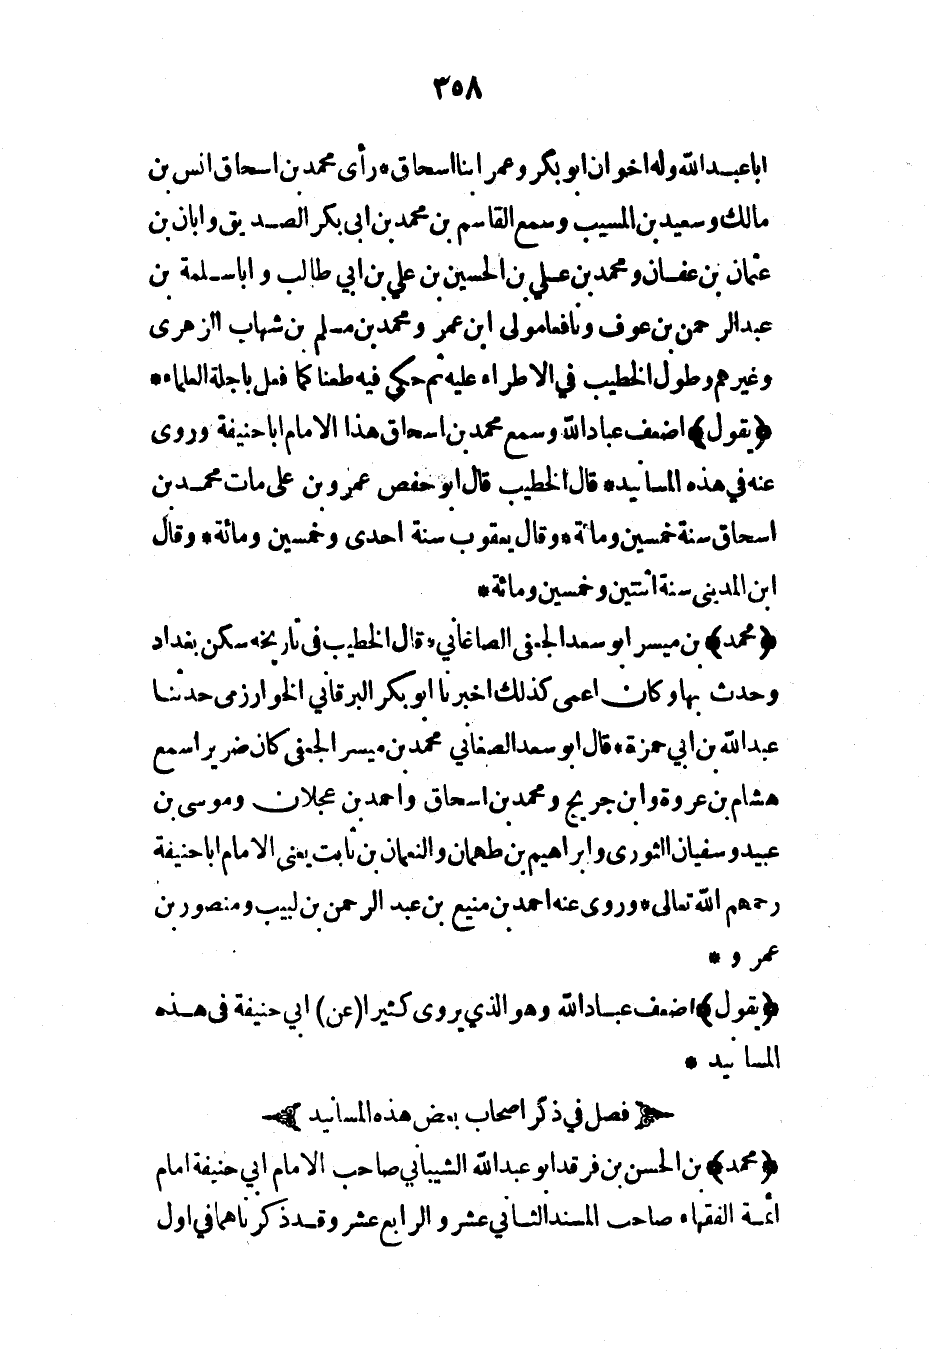 ٣٥٨
ابا عبد الله وله اخوان ابو بكر وعمر ابنا اسحاق * رأى محمد بن اسحاق انس بن
مالك وسعيد بن المسيب وسمع القاسم بن محمد بن ابى بكر الصديق وابان بن
عثمان بن عفان ومحمد بن علي بن الحسين بن علي بن ابي طالب و ابا سلمة بن
عبد الرحمن بن عوف ونافعا مولى ابن عمر ومحمد بن مسلم بن شهاب الزهرى
وغيرهم وطول الخطيب في الاطراء عليه ثم حكي فيه طعنا كما فعل باجلة العلماء *
﴿يقول﴾ اضعف عباد الله وسمع محمد بن اسحاق هذا الامام ابا حنيفة وروى
عنه في هذه المسانيد * قال الخطيب قال ابو حفص عمرو بن على مات محمد بن
اسحاق سنة خمسين ومائة * وقال يعقوب سنة احدى وخمسين ومائة * وقال
ابن المدينى سنة اثنتين وخمسين ومائة *
﴿محمد﴾ بن ميسر ابو سعد الجعفى الصاغاني * قال الخطيب فى تاريخه سكن بغداد
وحدث بها وكان اعمى كذلك اخبرنا ابو بكر البرقاني الخوارزمى حدثنا
عبد الله بن ابي حمزة * قال ابو سعد الصغاني محمد بن ميسر الجعفى كان ضريرا سمع
هشام بن عروة وابن جريج ومحمد بن اسحاق واحمد بن عجلان وموسى بن
عبيد وسفيان الثورى وابراهيم بن طهمان والنعمان بن ثابت يعنى الامام ابا حنيفة
رحمهم الله تعالى * وروى عنه احمد بن منيع بن عبد الرحمن بن لبيب ومنصور بن
عمرو *
﴿يقول﴾ اضعف عباد الله وهو الذي يروى كثيرا (عن) ابي حنيفة فى هذه
المسانيد *
﴿ فصل في ذكر اصحاب بعض هذه المسانيد ﴾
﴿محمد﴾ بن الحسن بن فرقد ابو عبد الله الشيباني صاحب الامام ابي حنيفة امام
ائمة الفقهاء صاحب المسند الثاني عشر و الرابع عشر وقد ذكرناهما في اول